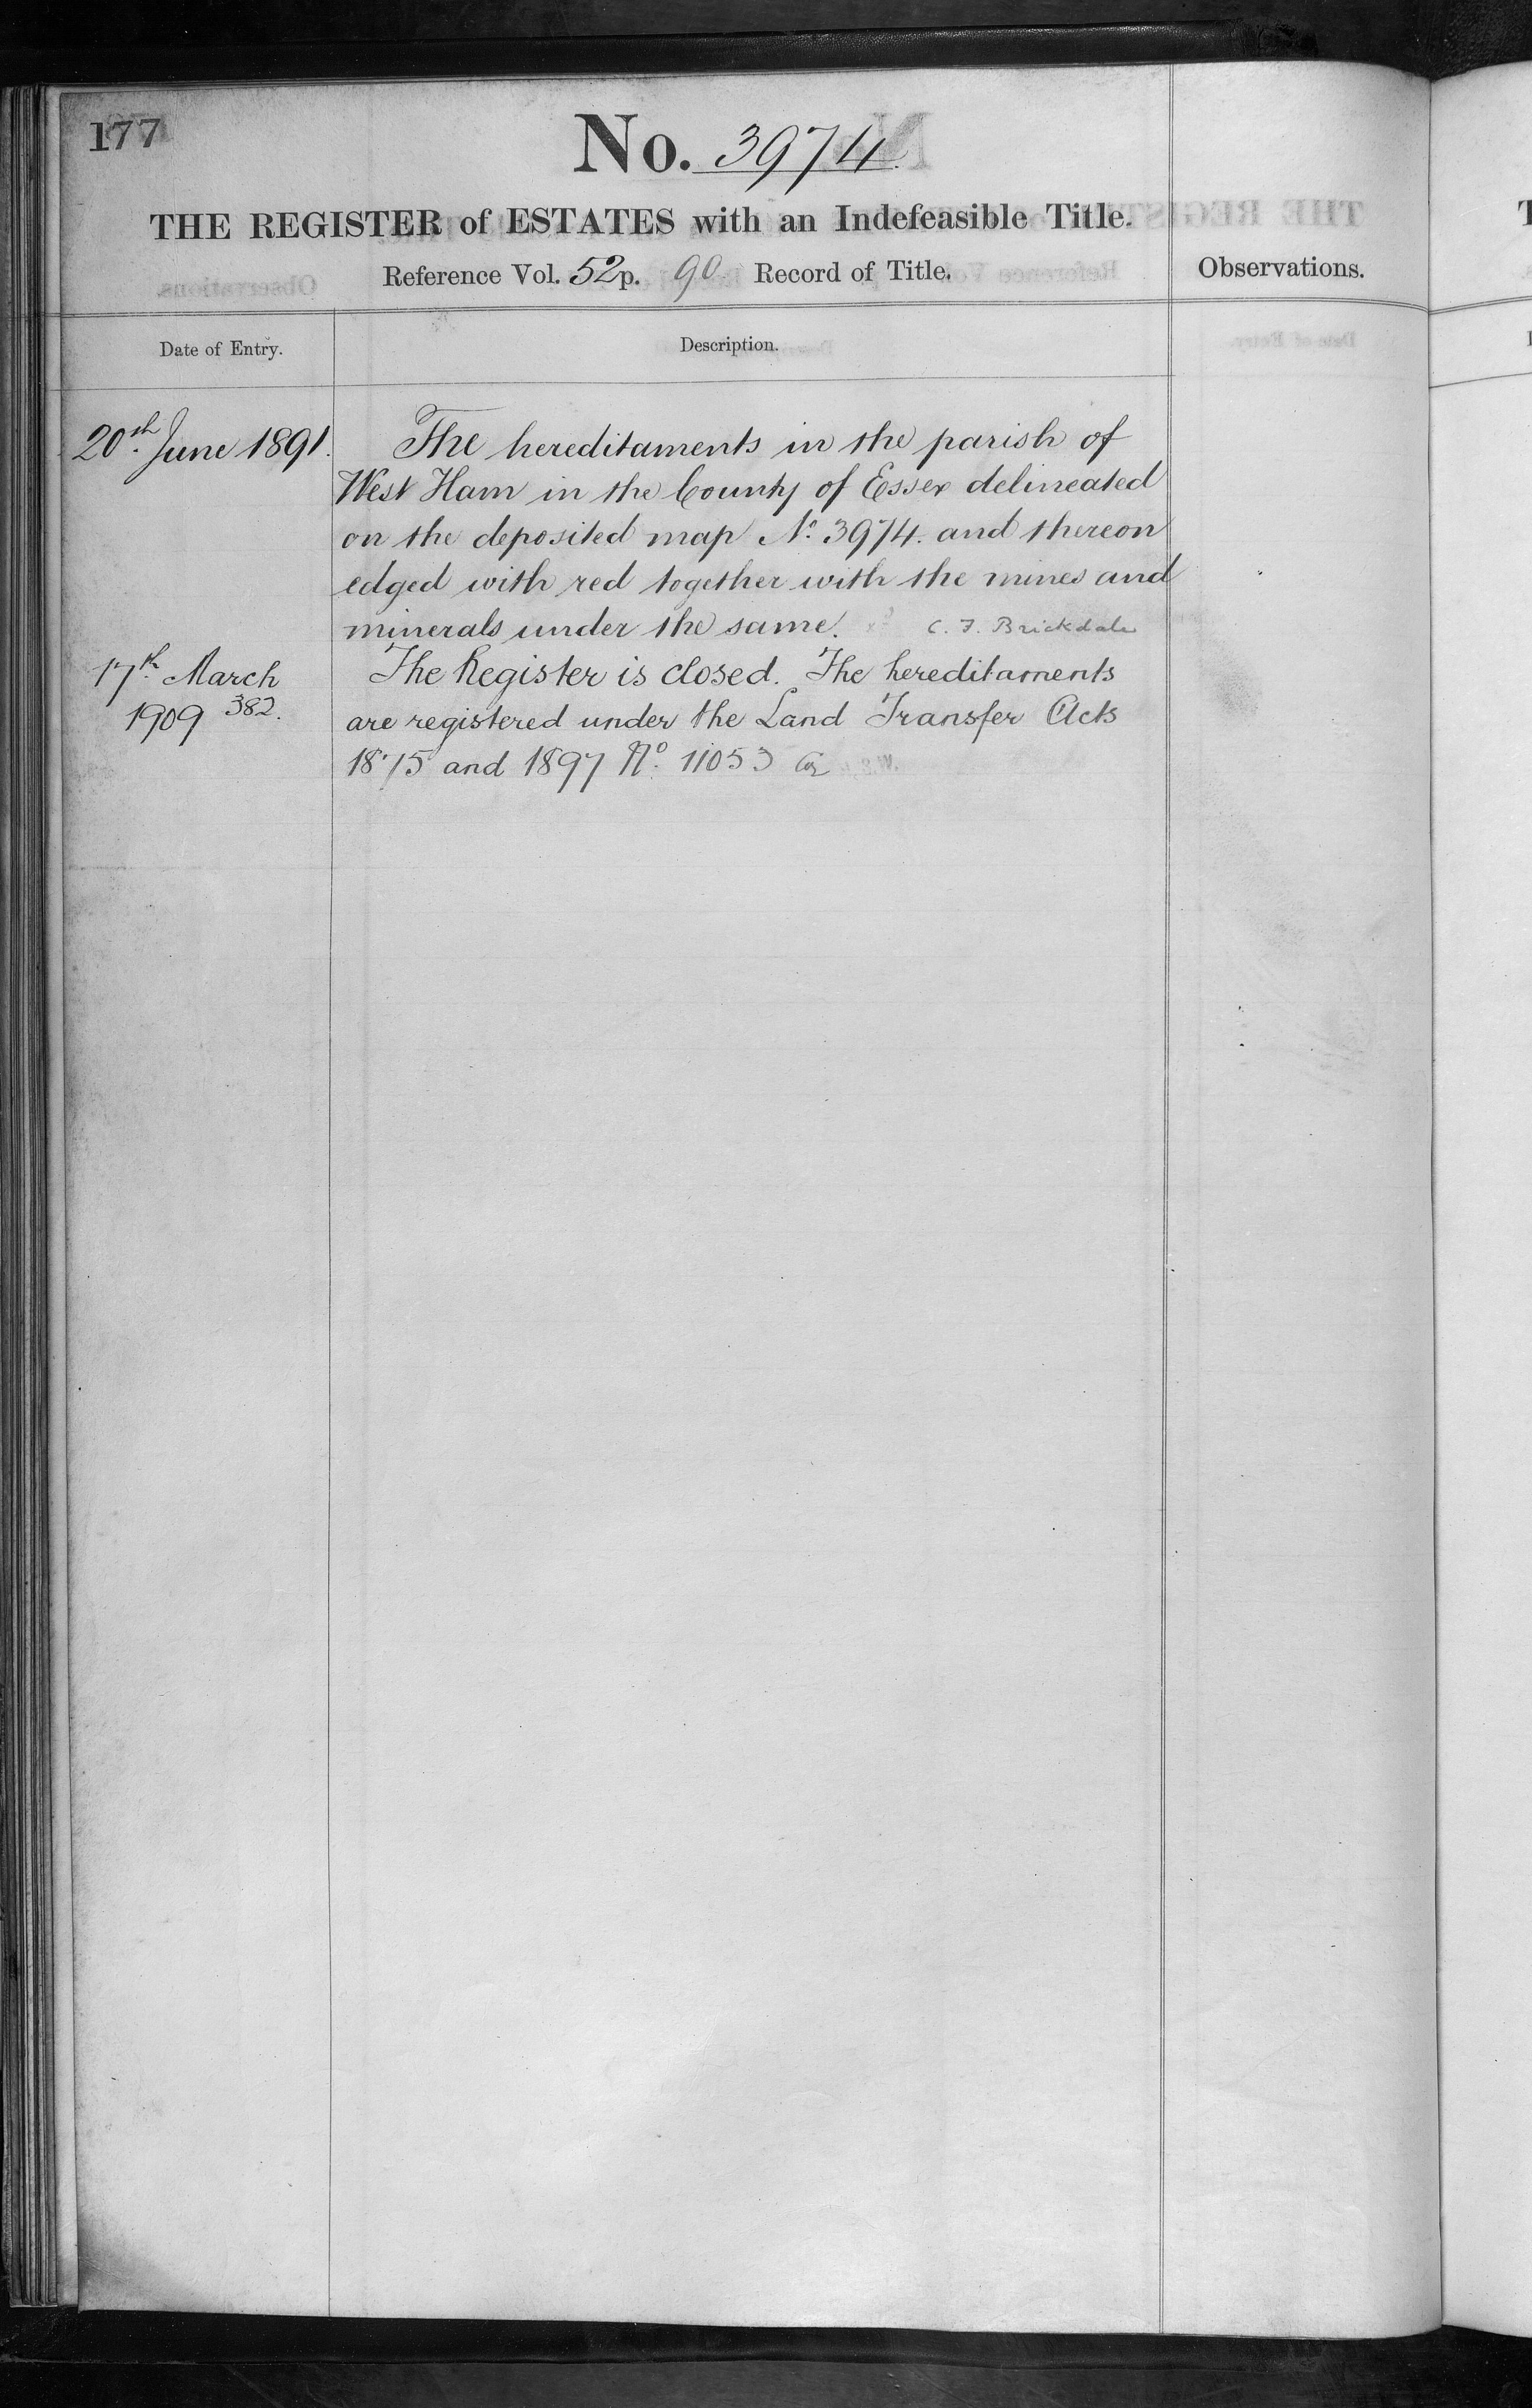 177
No. 3974.
THE REGISTER of ESTATES with an Indefeasible Title.
Reference Vol. 52 p. 90 Record of Title.
Observations.
Date of Entry.
Description.
20th June 1891.
The hereditaments in the parish of
West Ham in the County of Essex delineated
on the deposited map No. 3974. and thereon
edged with red together with the mines and
minerals under the same. C. F. Brickdale
17th March
1909 382.
The Register is closed. The hereditaments
are registered under the Land Transfer Acts
1875 and 1897 No. 11053